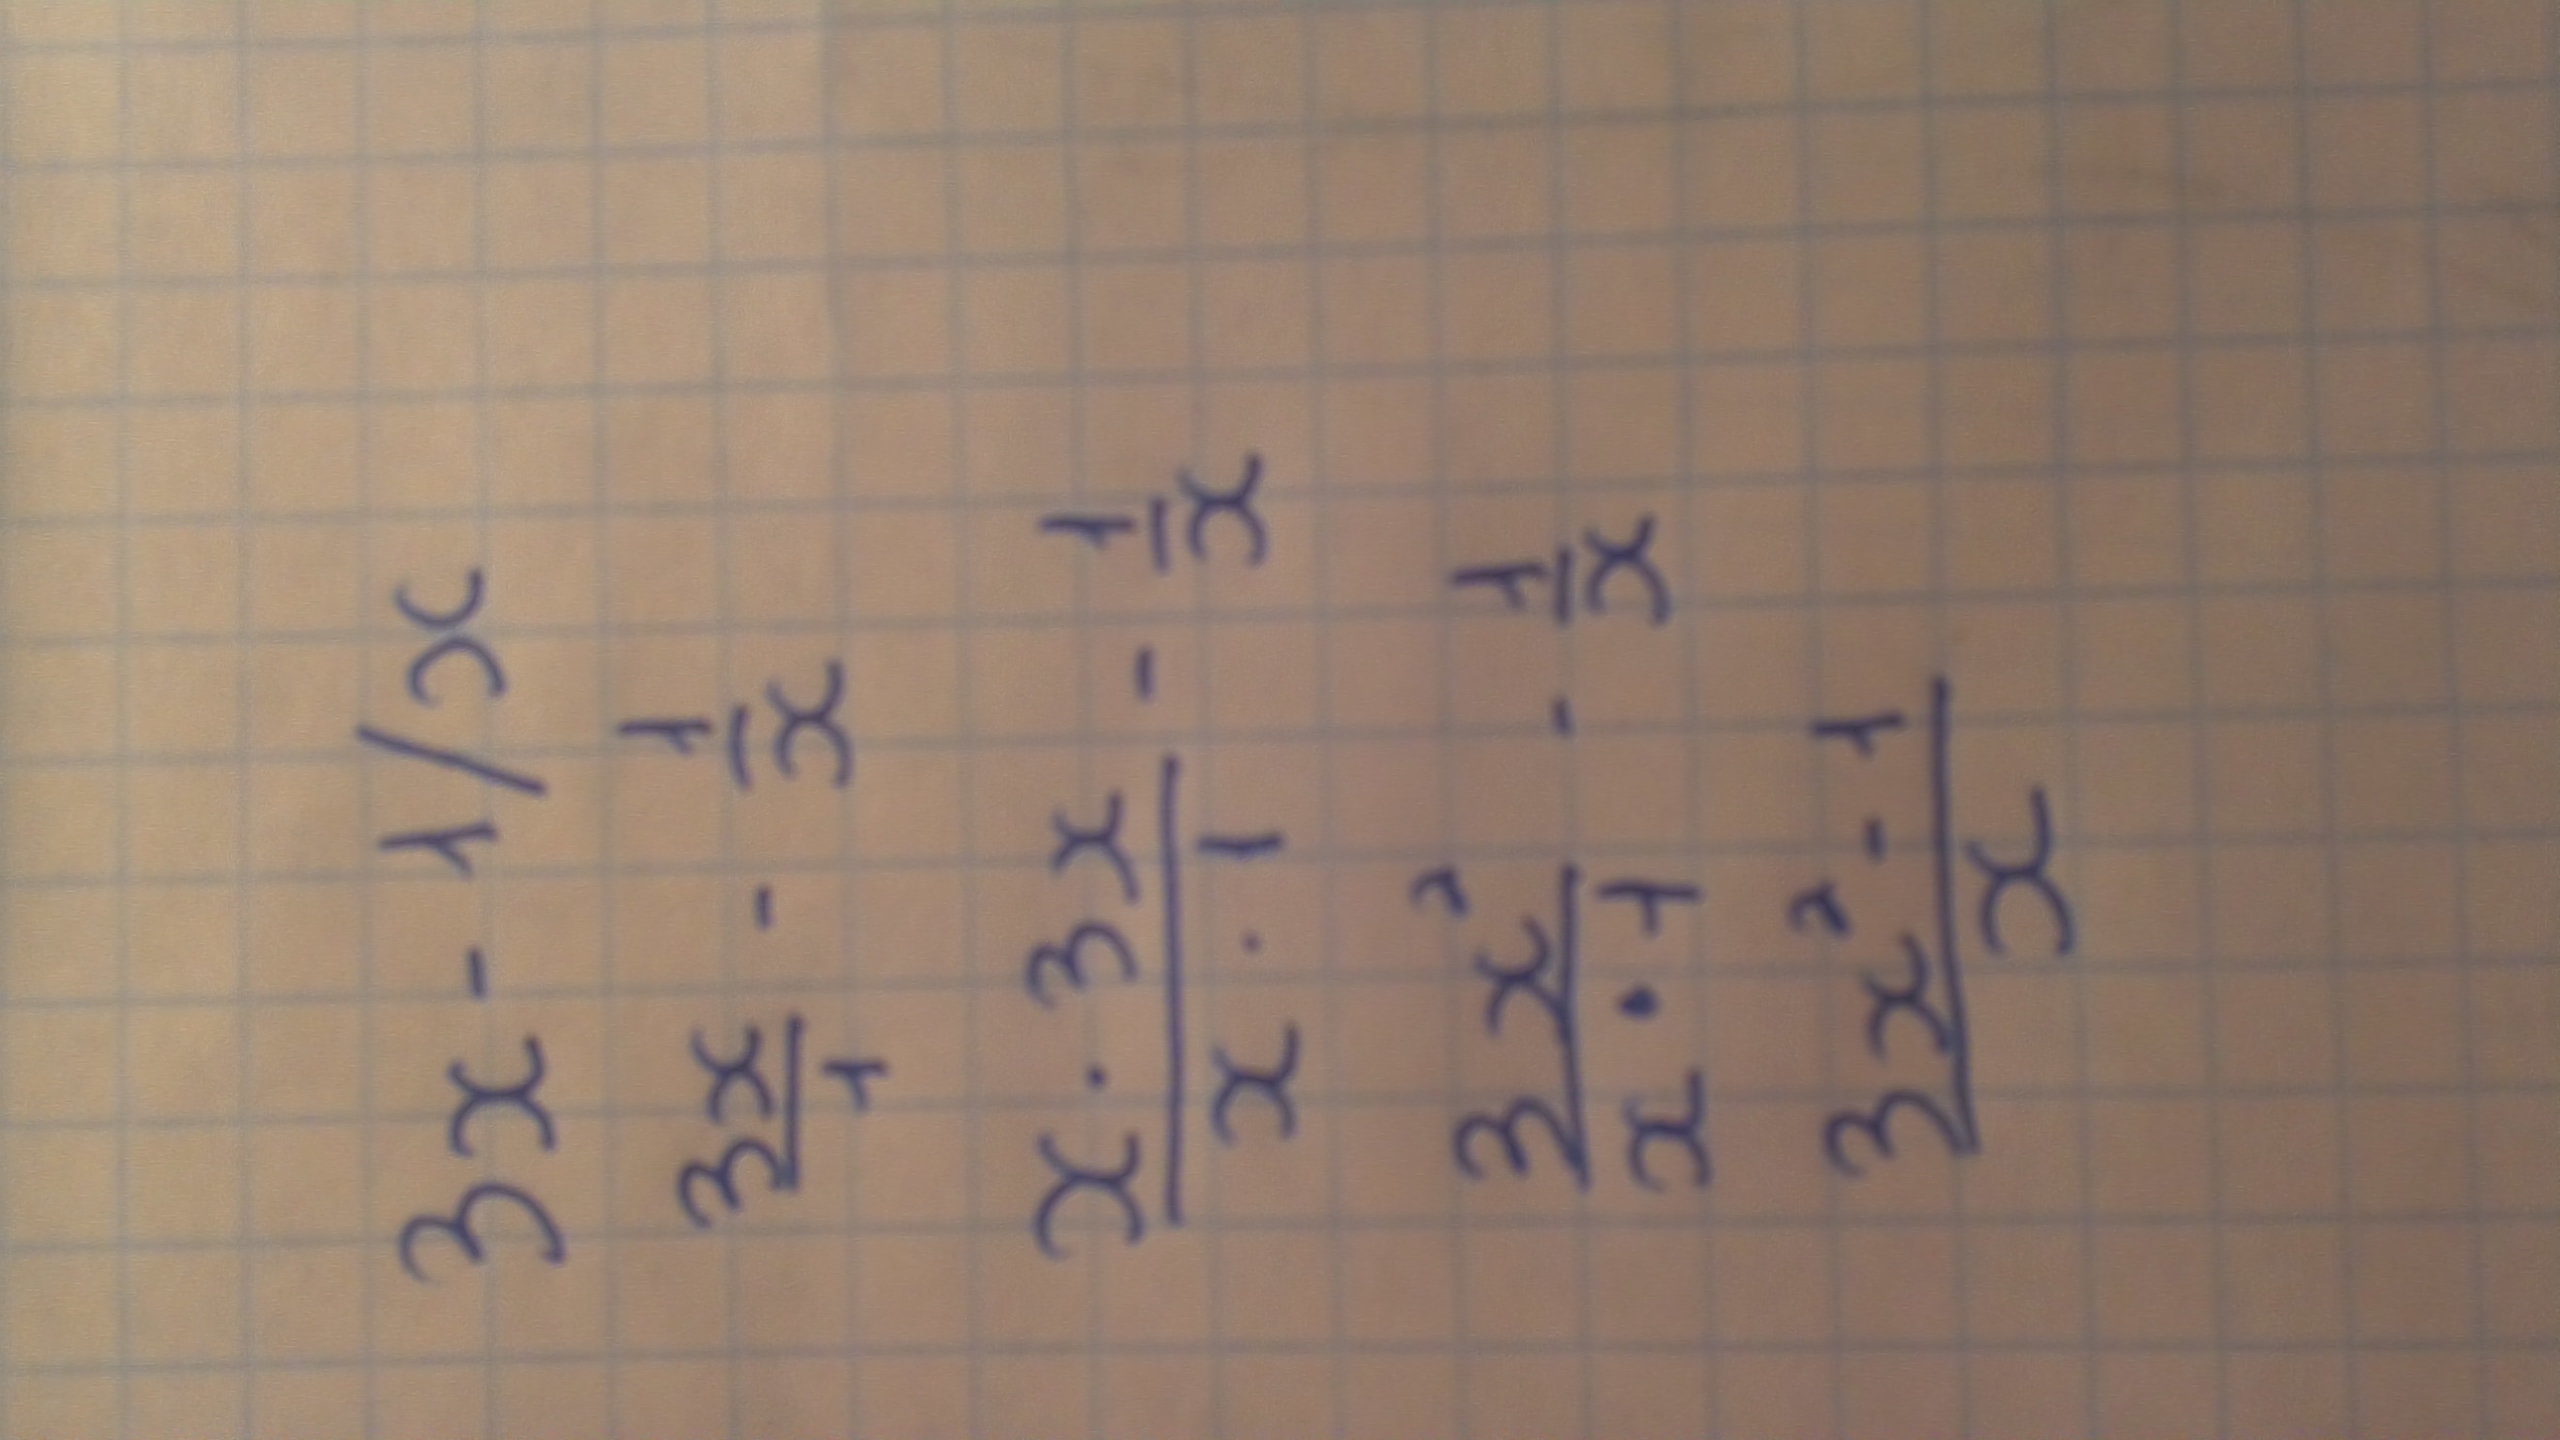 3x - 1/x
3x/1 - 1/x
x · 3x / x · 1 - 1/x
3x² / x · 1 - 1/x
3x² - 1 / x